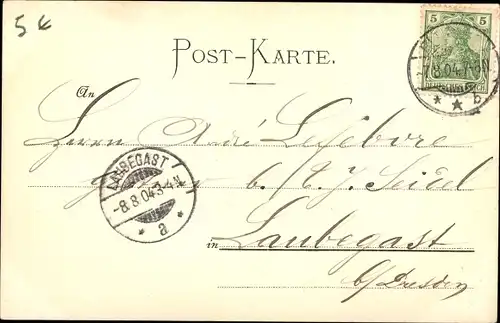 5 €
POST-KARTE.
5
DEUTSCHES REICH
7.8.04.7-8N
* * b
An
Herrn André Lefebvre
b./ C. J. Seidel
LAUBEGAST
-8.8.04 3-4N.
* a *
in Laubegast
b/Dresden